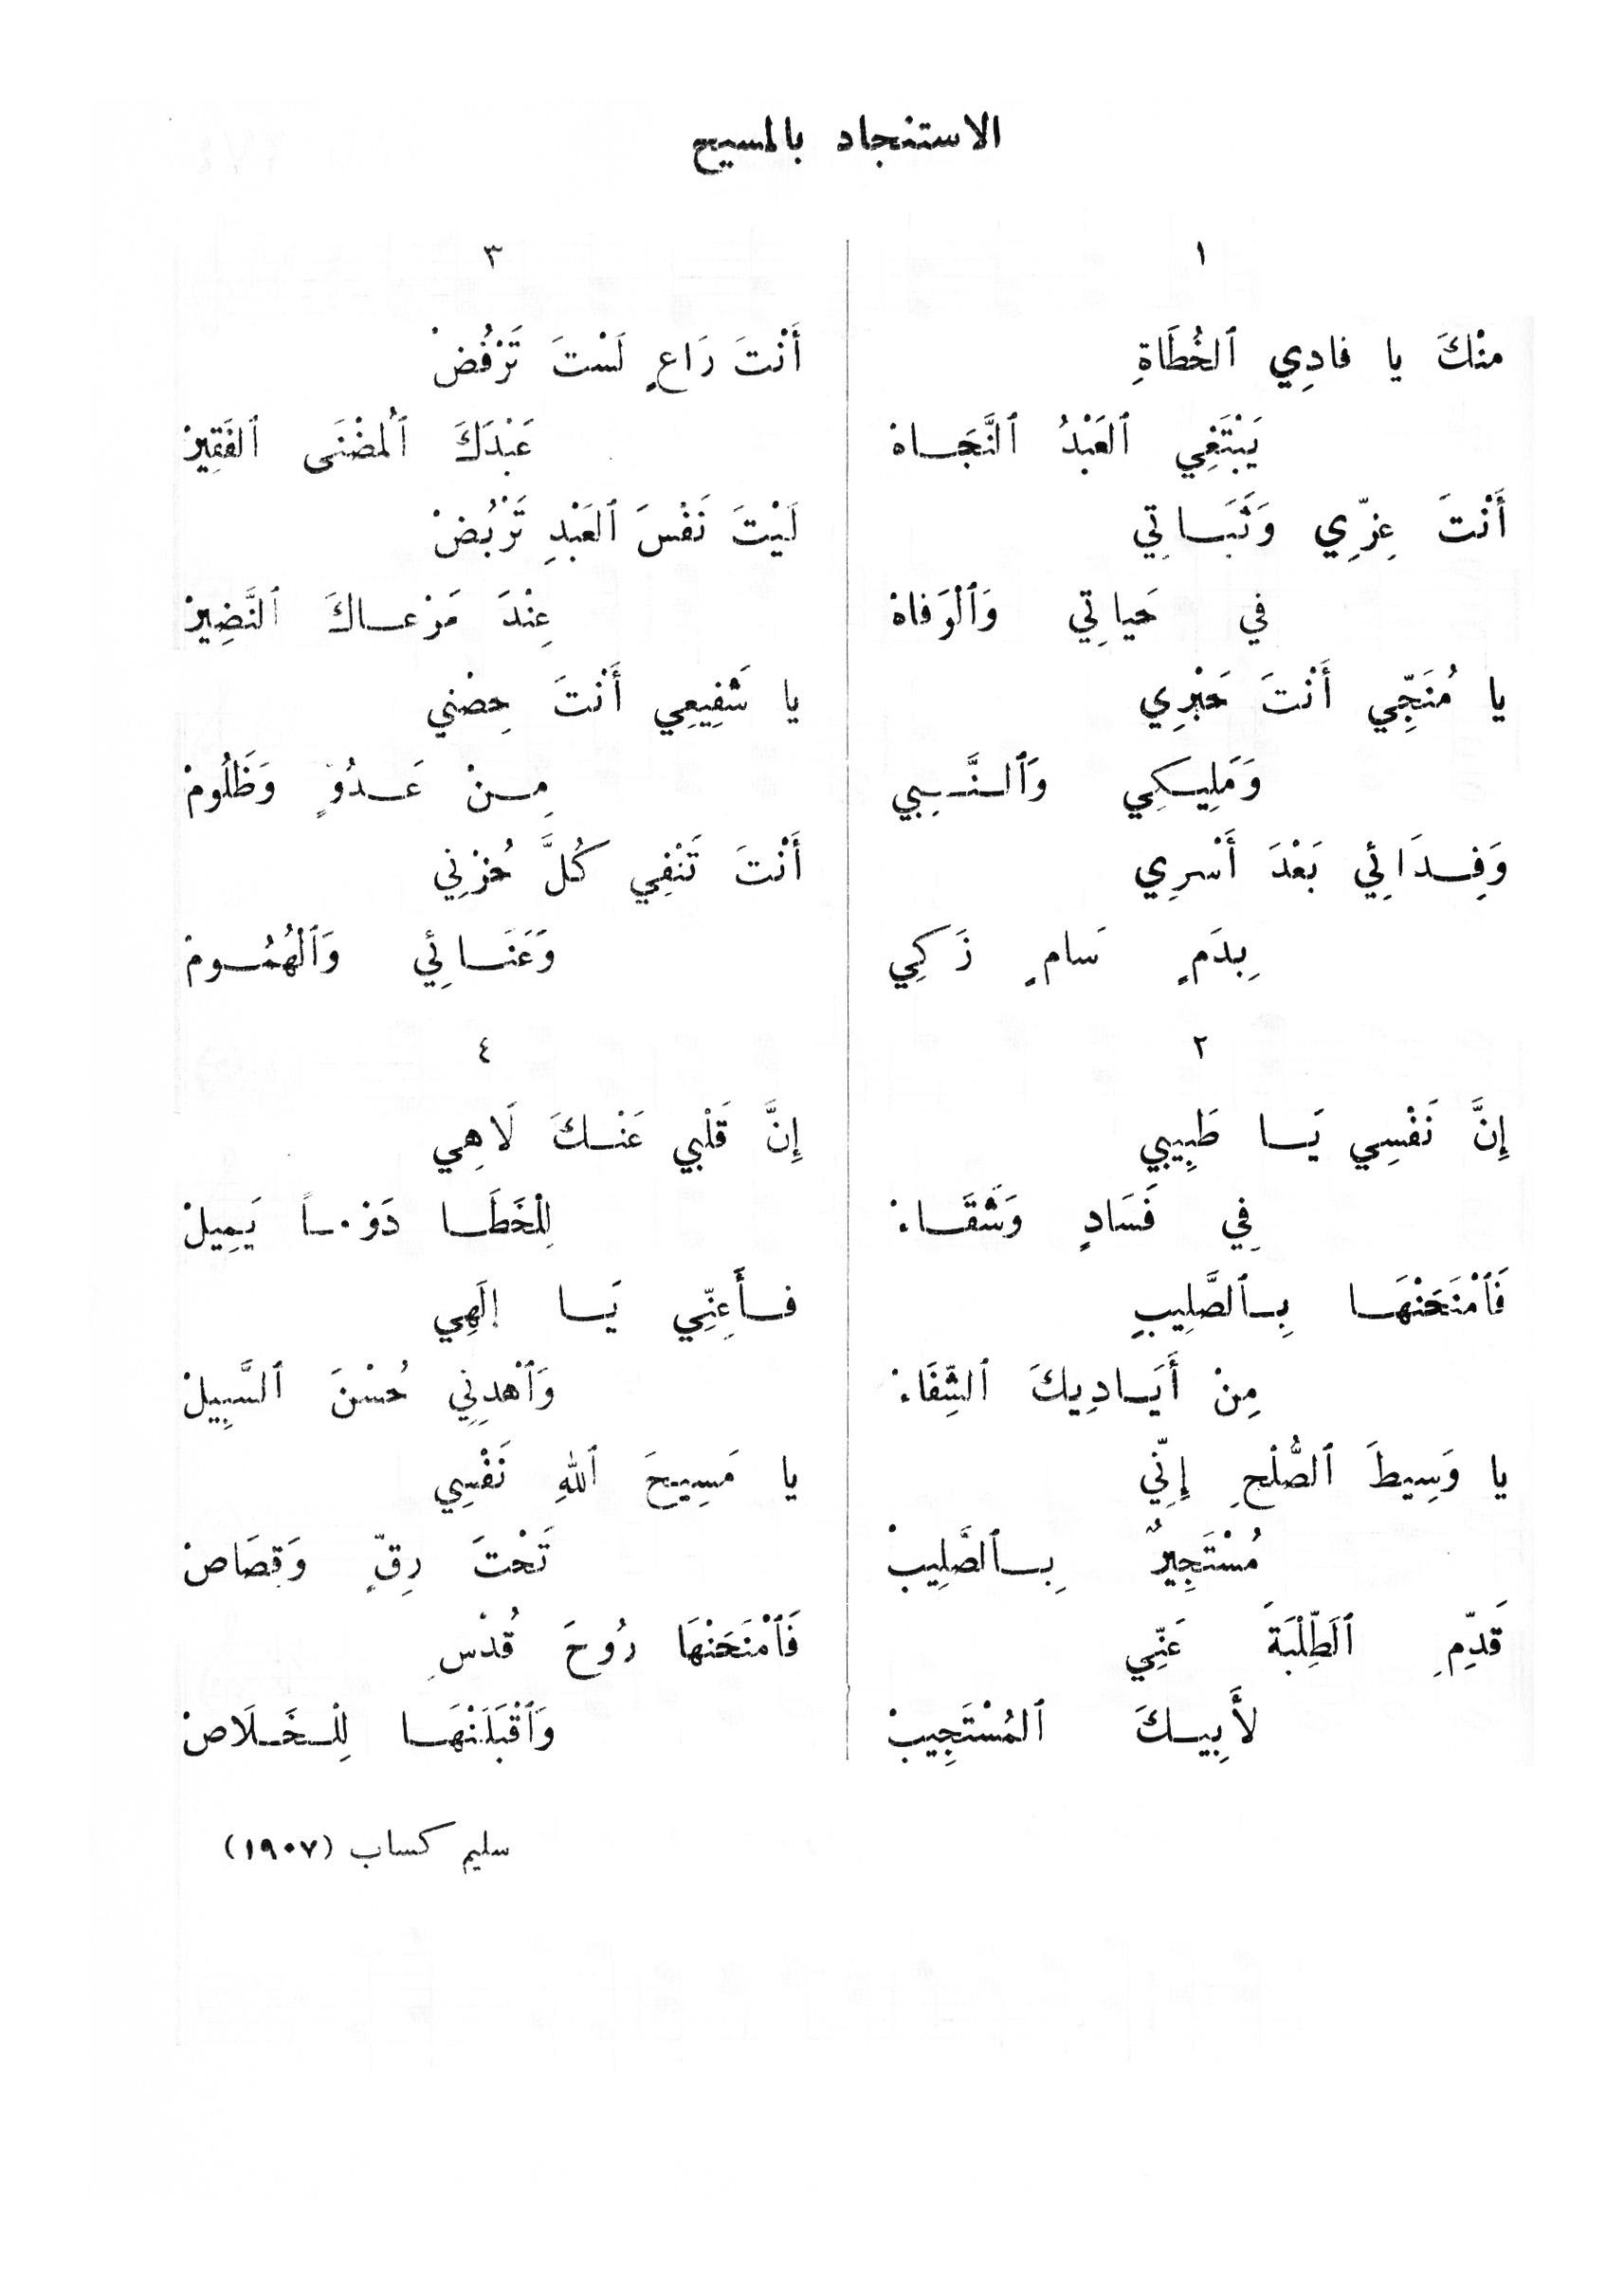 الاستنجاد بالمسيح
١
منْكَ يا فادِي ٱلخُطَاةِ
يَبْتَغِي ٱلعَبْدُ ٱلنَّجَـاهْ
أَنْتَ عِزِّي وَثَبَـاتِي
في حَياتِي وَٱلْوَفاهْ
يا مُنَجِّي أَنْتَ حَبْرِي
وَمَلِيـكِي وَٱلـنَّـبِي
وَفِـدَائِي بَعْدَ أَسْرِي
بِدَمٍ سَامٍ زَكِي
٢
إِنَّ نَفْسِي يَـا طَبِيبِي
فِي فَسَادٍ وَشَقَـاءْ
فَٱمْنَحَنْهَـا بِـٱلصَّلِيبِ
مِنْ أَيَـادِيكَ ٱلشِّفَاءْ
يا وَسِيطَ ٱلصُّلْحِ إِنِّي
مُسْتَجِيرٌ بِـٱلصَّلِيبْ
قَدِّمِ ٱلَطِّلْبَةَ عَنِّي
لأَبِيـكَ ٱلمُسْتَجِيبْ
٣
أَنْتَ رَاعٍ لَسْتَ تَرْفُضْ
عَبْدَكَ ٱلُمضْنَى ٱلفَقِيرْ
لَيْتَ نَفْسَ ٱلعَبْدِ تَرْبُضْ
عِنْدَ مَرْعـاكَ ٱلنَّضِيرْ
يا شَفِيعِي أَنْتَ حِصْنِي
مِـنْ عَـدُوٍّ وَظَلُومْ
أَنْتَ تَنْفِي كُلَّ حُزْنِي
وَعَنَـائِي وَٱلْهُمُـومْ
٤
إِنَّ قَلْبِي عَنْـكَ لَاهِي
لِلْخَطَـا دَوْمـاً يَمِيلْ
فـأَعِنِّي يَـا إلَهِي
وَٱهْدِنِي حُسْنَ ٱلسَّبِيلْ
يا مَسِيحَ ٱللهِ نَفْسِي
تَحْتَ رِقٍّ وَقِصَاصْ
فَٱمْنَحَنْهَا رُوحَ قُدْسِ
وَٱقْبَلَنْهَـا لِلْـخَـلَاصْ
سليم كساب (١٩٠٧)